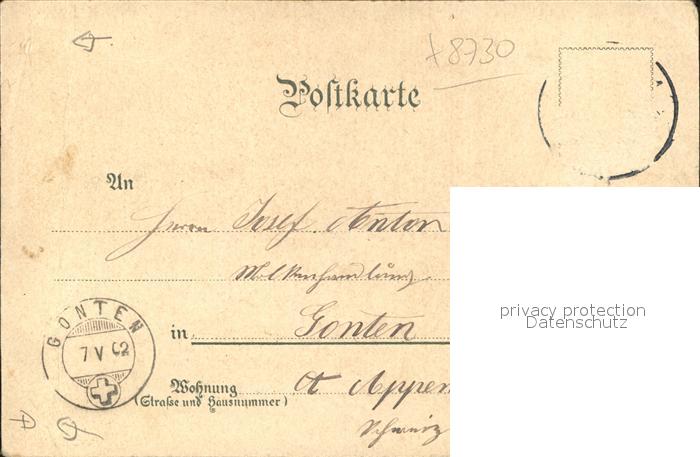 x8730
Postkarte
An
Herrn Josef Anton
in Gonten
GONTEN
7 V 02
Wohnung
(Straße und Hausnummer)
Ct Appen
Schweiz
privacy protection
Datenschutz